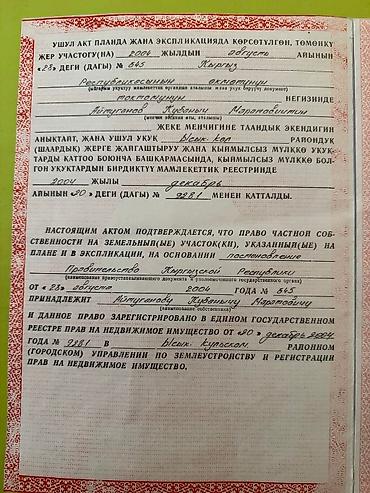 УШУЛ АКТ ПЛАНДА ЖАНА ЭКСПЛИКАЦИЯДА КӨРСӨТҮЛГӨН, ТӨМӨНКҮ
ЖЕР УЧАСТОГУ(НА) 2004 ЖЫЛДЫН августь АЙЫНЫН
«28» ДЕГИ (ДАГЫ) № 645 Кыргыз
Республикасынын
токтомунун НЕГИЗИНДЕ
Айтуганов Кубаныч Маратовичтин
ЖЕКЕ МЕНЧИГИНЕ ТААНДЫК ЭКЕНДИГИН
АНЫКТАЙТ, ЖАНА УШУЛ УКУК Ысык-көл РАЙОНДУК
(ШААРДЫК) ЖЕРГЕ ЖАЙГАШТЫРУУ ЖАНА КЫЙМЫЛСЫЗ МҮЛККӨ УКУК-
ТАРДЫ КАТТОО БОЮНЧА БАШКАРМАСЫНДА, КЫЙМЫЛСЫЗ МҮЛККӨ БОЛ-
ГОН УКУКТАРДЫН БИРДИКТҮҮ МАМЛЕКЕТТИК РЕЕСТРИНДЕ
2004 ЖЫЛЫ декабрь
АЙЫНЫН «20» ДЕГИ (ДАГЫ) № 9281 МЕНЕН КАТТАЛДЫ.
НАСТОЯЩИМ АКТОМ ПОДТВЕРЖДАЕТСЯ, ЧТО ПРАВО ЧАСТНОЙ СОБ-
СТВЕННОСТИ НА ЗЕМЕЛЬНЫЙ(ЫЕ) УЧАСТОК(КИ), УКАЗАННЫЙ(ЫЕ) НА
ПЛАНЕ И В ЭКСПЛИКАЦИИ, НА ОСНОВАНИИ постановление
Правительство Кыргызской Республики
(наименование правоустанавливающего документа и уполномоченного государственного органа)
ОТ «28» августа 2004 ГОДА № 645
ПРИНАДЛЕЖИТ Айтуганову Кубанычу Маратовичу
(наименование собственника)
И ДАННОЕ ПРАВО ЗАРЕГИСТРИРОВАНО В ЕДИНОМ ГОСУДАРСТВЕННОМ
РЕЕСТРЕ ПРАВ НА НЕДВИЖИМОЕ ИМУЩЕСТВО ОТ «20» декабрь 2004
ГОДА № 9281 В Ысык-кульском РАЙОННОМ
(ГОРОДСКОМ) УПРАВЛЕНИИ ПО ЗЕМЛЕУСТРОЙСТВУ И РЕГИСТРАЦИИ
ПРАВ НА НЕДВИЖИМОЕ ИМУЩЕСТВО.